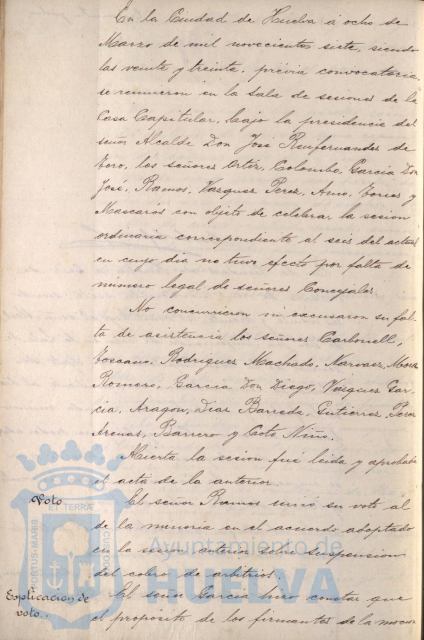 En la Ciudad de Huelva á ocho de
Marzo de mil novecientos siete, siendo
las veinte y treinta, previa convocatoria,
se reunieron en la Sala de sesiones de la
Casa Capitular, bajo la presidencia del
señor Alcalde Don José
Toro, los señores Ortiz, Colombo, Garcia Don
José, Ramos, Vazquez Perez, Amo, Torres y
Mascarós con objeto de celebrar la sesion
ordinaria correspondiente al seis del actual
en cuyo dia no tuvo efecto por falta de
número legal de señores Concejales.
No concurrieron ni excusaron su fal-
ta de asistencia los señores Carbonell,
Toscano, Rodriguez Machado, Narvaez,
Romero, Garcia Don Diego, Vazquez Gar-
cia, Aragon, Diaz Barreda, Gutierrez, Perez
Arenas, Barrero y Coto Niño.
Abierta la sesion fué leida y aprobada
el acta de la anterior.
Voto
El señor Ramos unió su voto al
de la minoria en el acuerdo adoptado
en la sesion anterior sobre suspension
del cobro de arbitrios.
Explicacion de
voto.
El señor Garcia hizo constar que
el propósito de los firmantes de la mocion
Ayuntamiento de
HUELVA
PORTUS MARIS
ET TERRÆ
CUSTODIA